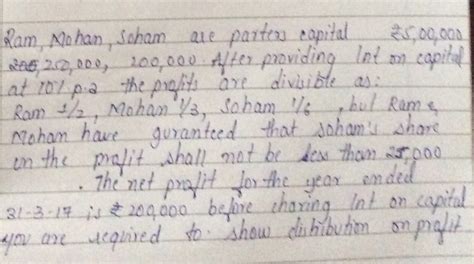 Ram, Mohan, Soham are parters capital ₹5,00,000
250,000, 200,000. After providing Int on capital
at 10% p.a the profits are divisible as:
Ram 1/2, Mohan 1/3, Soham 1/6, but Ram &
Moham have guranteed that soham's share
in the profit shall not be less than 25,000
. The net profit for the year ended
31-3-17 is ₹200,000 before charing Int on capital
you are required to show distibution on profit